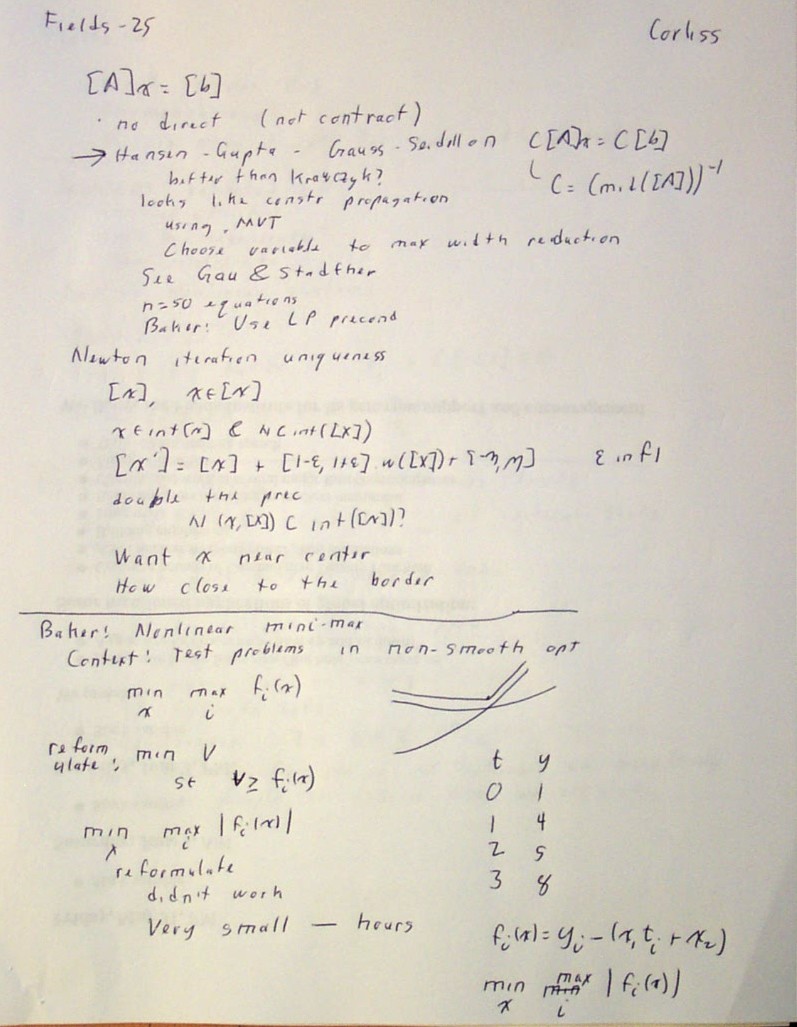 Fields-25 Corliss
[A]x = [b]
· no direct (not contract)
→ Hansen - Gupta - Gauss - Seidel on C[A]x = C[b]
better than Krawczyk? C = (mid([A]))⁻¹
looks like constr propagation
using MVT
Choose variable to max width reduction
See Gau & Stadther
n=50 equations
Baker: Use LP precond
Newton iteration uniqueness
[x], x∈[x]
x∈int[x] & N⊂int([x])
[x'] = [x] + [1-ε, 1+ε] w([x]) + [-η, η] ε infl
double the prec
N(x,[x]) ⊂ int([x])?
Want x near center
How close to the border
Baker: Nonlinear mini-max
Context: Test problems in non-smooth opt
min max fᵢ(x)
x i
reform
ulate: min V
st V ≥ fᵢ(x)
min max |fᵢ(x)|
x i
reformulate
didn't work
Very small — hours
t y
0 1
1 4
2 5
3 8
fᵢ(x) = yᵢ - (x₁tᵢ + x₂)
min max |fᵢ(x)|
x i